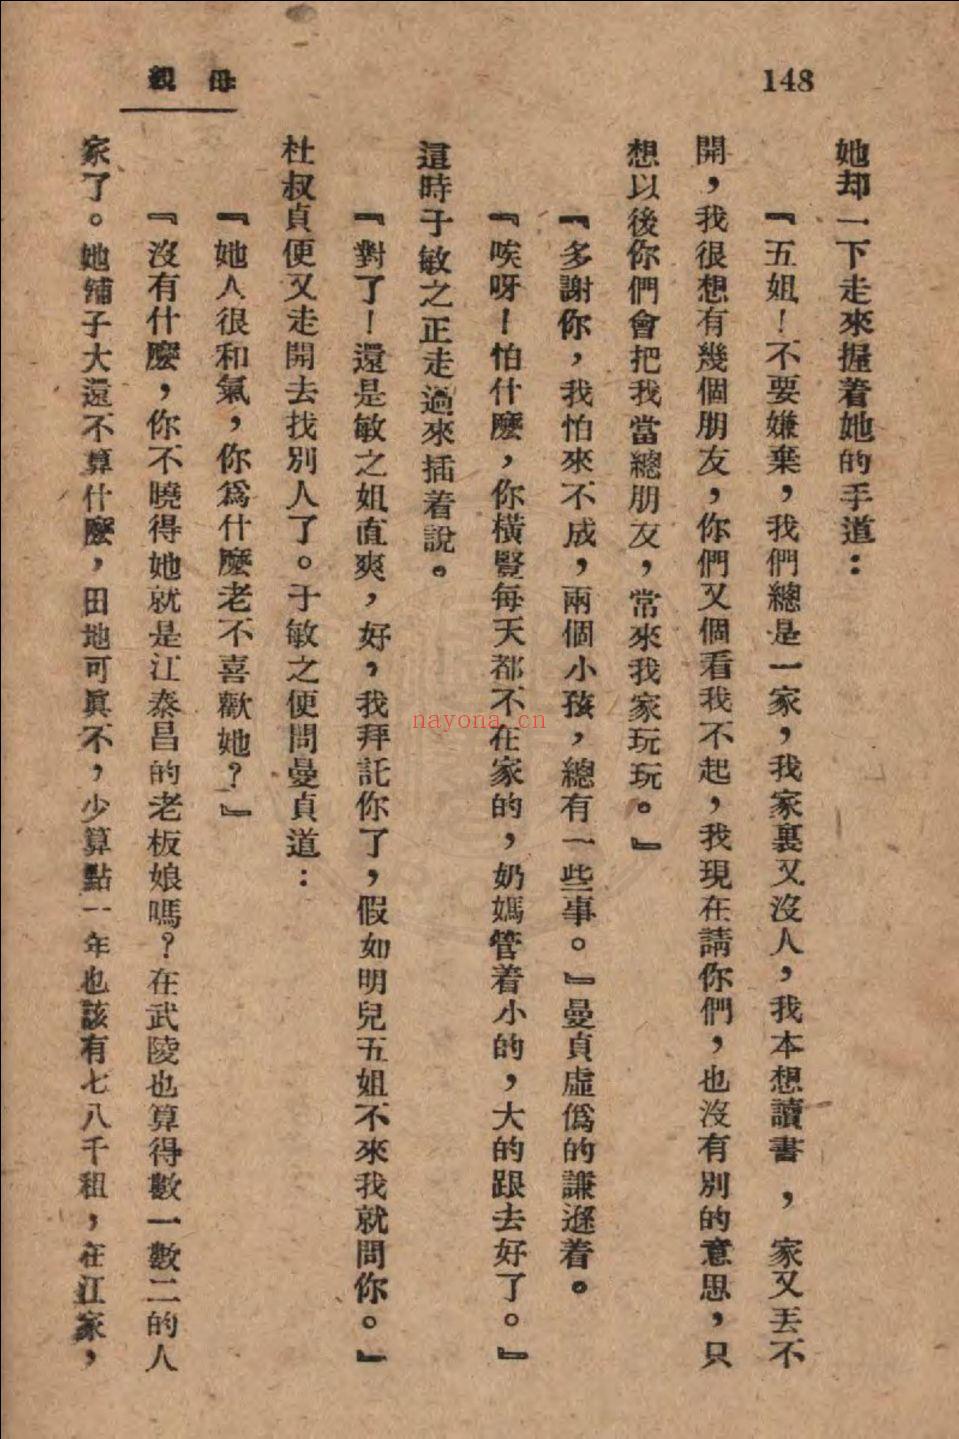 148
母親
她却一下走來握着她的手道：
『五姐！不要嫌棄，我們總是一家，我家裏又沒人，我本想讀書，家又丟不
開，我很想有幾個朋友，你們又個看我不起，我現在請你們，也沒有別的意思，只
想以後你們會把我當總朋友，常來我家玩玩。』
『多謝你，我怕來不成，兩個小孩，總有一些事。』曼貞虛僞的謙遜着。
『唉呀！怕什麼，你橫豎每天都不在家的，奶媽管着小的，大的跟去好了。』
這時于敏之正走過來插着說。
『對了！還是敏之姐直爽，好，我拜託你了，假如明兒五姐不來我就問你。』
杜叔貞便又走開去找別人了。于敏之便問曼貞道：
『她人很和氣，你爲什麼老不喜歡她？』
『沒有什麼，你不曉得她就是江泰昌的老板娘嗎？在武陵也算得數一數二的人
家了。她舖子大還不算什麼，田地可眞不，少算點一年也該有七八千租，在江家，
nayona.cn